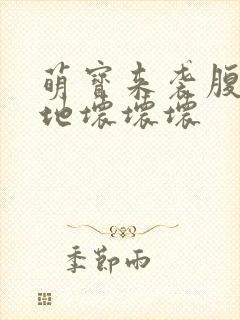 萌寶来袭腹
地壞壞壞
季節雨